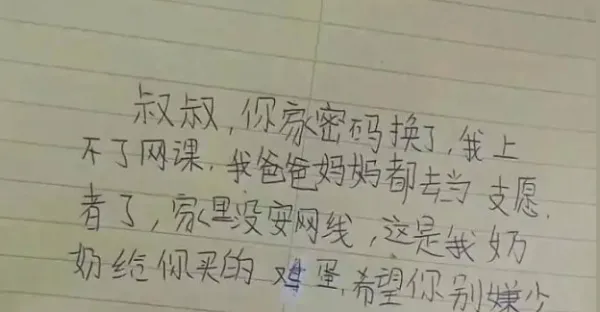 叔叔,你家密码换了,我上
不了网课,我爸爸妈妈都去当支愿
者了,家里没安网线,这是我奶
奶给你买的鸡蛋,希望你别嫌少